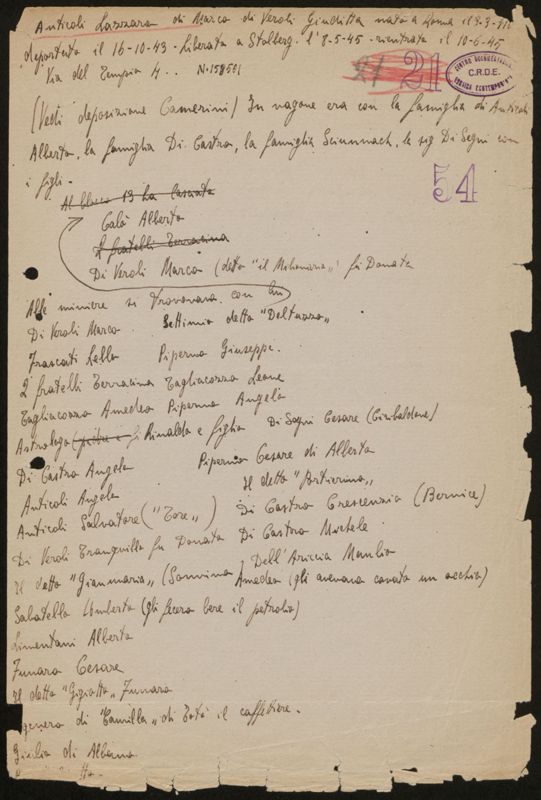 Anticoli Lazzaro di Marco di Veroli Giuditta nato a Roma il 9-3-910
deportato il 16-10-43 - Liberato a Stolberg l'8-5-45 - rientrato il 10-6-45
Via del Tempio 4.. N. 158501
21 21
CENTRO DOCUMENTAZIONE
C.R.D.E.
EBRAICA CONTEMPORANEA
(Vedi deposizione Camerini) In vagone era con la famiglia di Anticoli
Alberto, la famiglia Di Castro, la famiglia Sciunnach, la sig Di Segni con
i figli.
54
Al blocco 19 ha lasciato
Calò Alberto
2 fratelli Terracina
Di Veroli Marco (detto "il Milonario") fu Donato
Alle miniere si trovavano con lui
Di Veroli Marco Settimio detto "Deltuzzo"
Frascati Lello Piperno Giuseppe.
2 fratelli Terracina Tagliacozzo Leone
Tagliacozzo Amedeo Piperno Angelo
Astrologo (padre e fi Rinaldo e figlio Di Segni Cesare (Ciribaldone)
Di Castro Angelo Piperno Cesare di Alberto
Anticoli Angelo Il detto "Botticino"
Anticoli Salvatore ("Tore") Di Castro Crescenzio (Bernice)
Di Veroli Tranquillo fu Donato Di Castro Michele
Il detto "Gianmaria" (Sonnino) Dell'Ariccia Manlio
Amedeo (gli avevano cavato un occhio)
Sabatello Umberto (gli fecero bere il petrolio)
Limentani Alberto
Funaro Cesare
Il detto "Gigiotto" Funaro
genero di "Camilla" di Totò il caffettiere.
Giulio di Albano